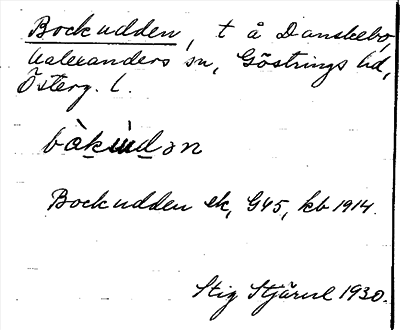 Bockudden, t å Danskebo,
Kalexanders sn, Göstrings hd,
Österg. l.
bòkùdən
Bockudden ek, G45, kb 1914.
Stig Stjärul 1930.